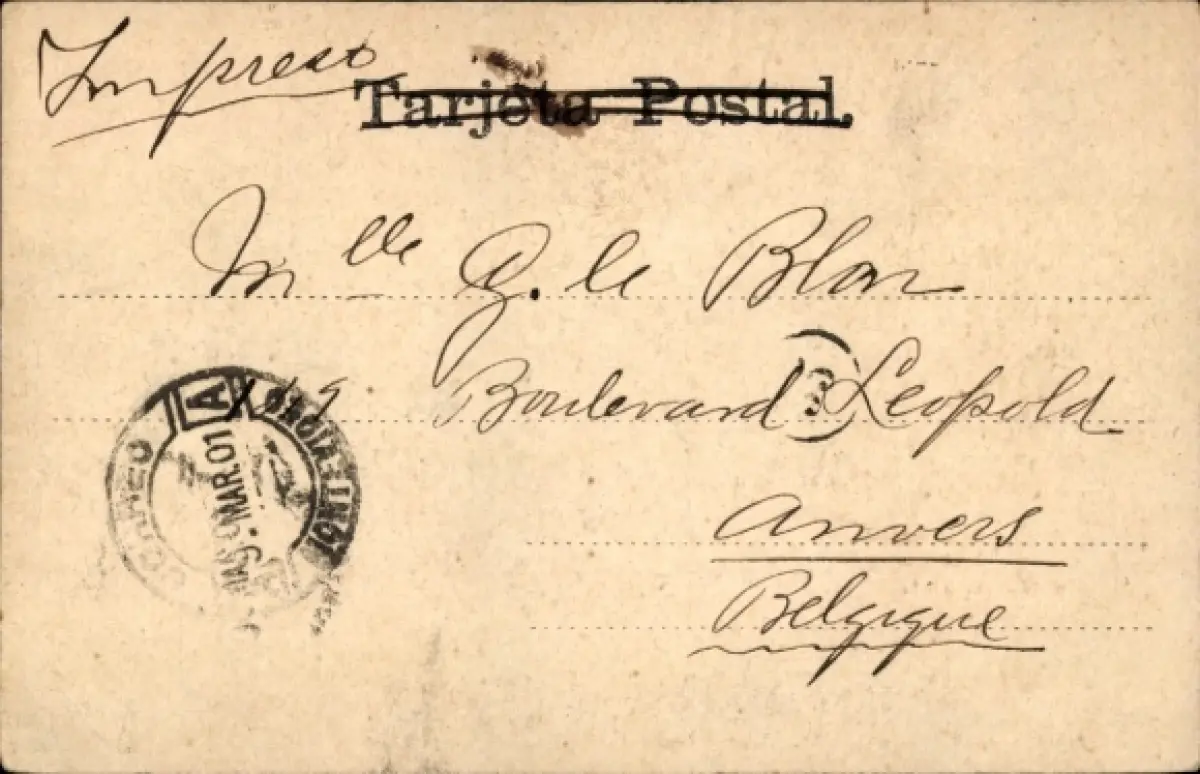 Impreso
Tarjeta Postal.
Mlle G. le Blon
149 Boulevard Leopold
3
Anvers
Belgique
CORREO
A
MAR.01